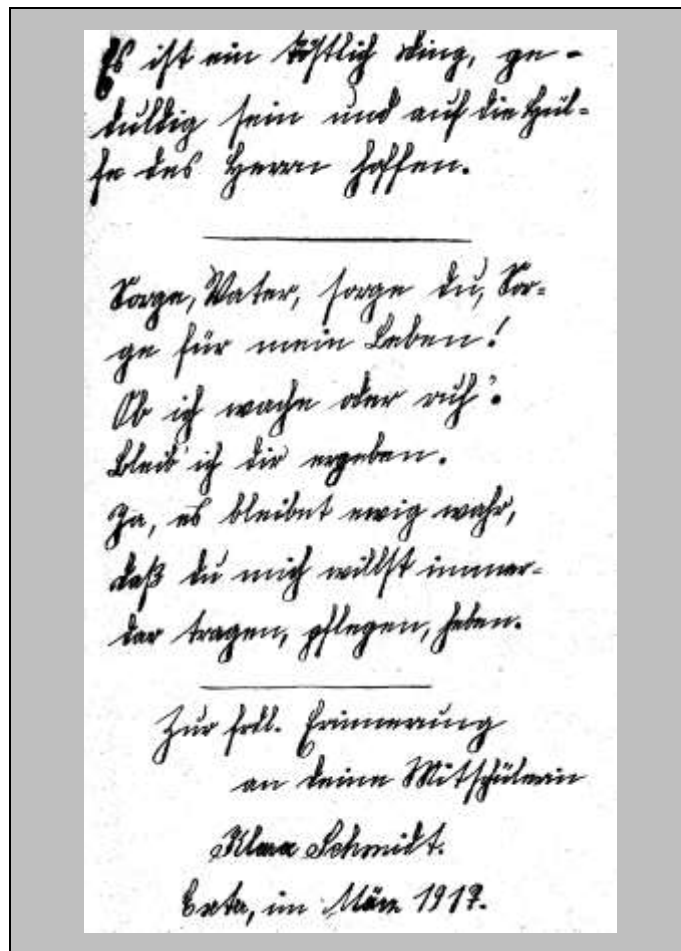 Es ist ein köstlich Ding, ge-
duldig sein und auf die Hül-
fe des Herrn hoffen.
Sorge, Vater, sorge du, Sor-
ge für mein Leben!
Ob ich wache oder ruh'.
Bleib' ich dir ergeben.
Ja, es bleibet ewig wahr,
daß du mich willst immer-
dar tragen, pflegen, heben.
Zur frdl. Erinnerung
an deine Mitschülerin
Klara Schmidt.
Exter, im März 1917.